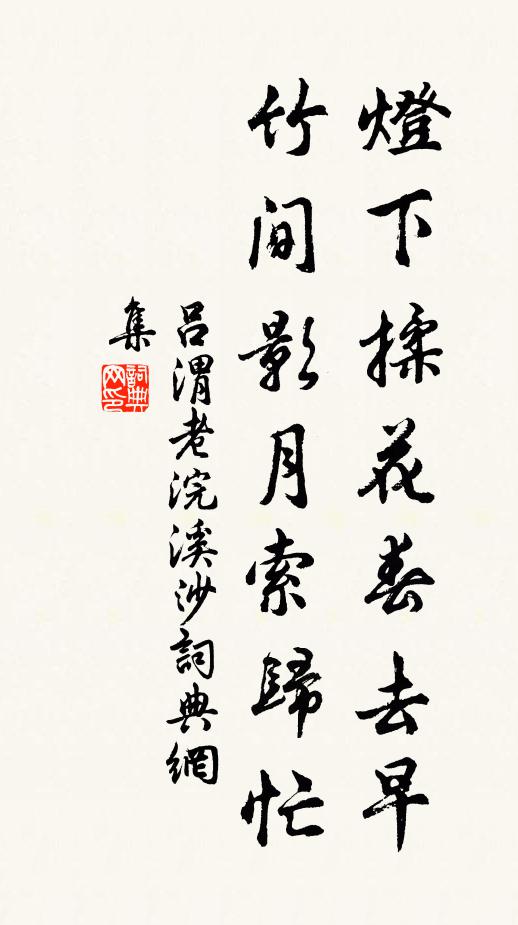 燈下揉花春去早
竹間影月索歸忙
呂渭老浣溪沙詞典網
集
詞典
网印